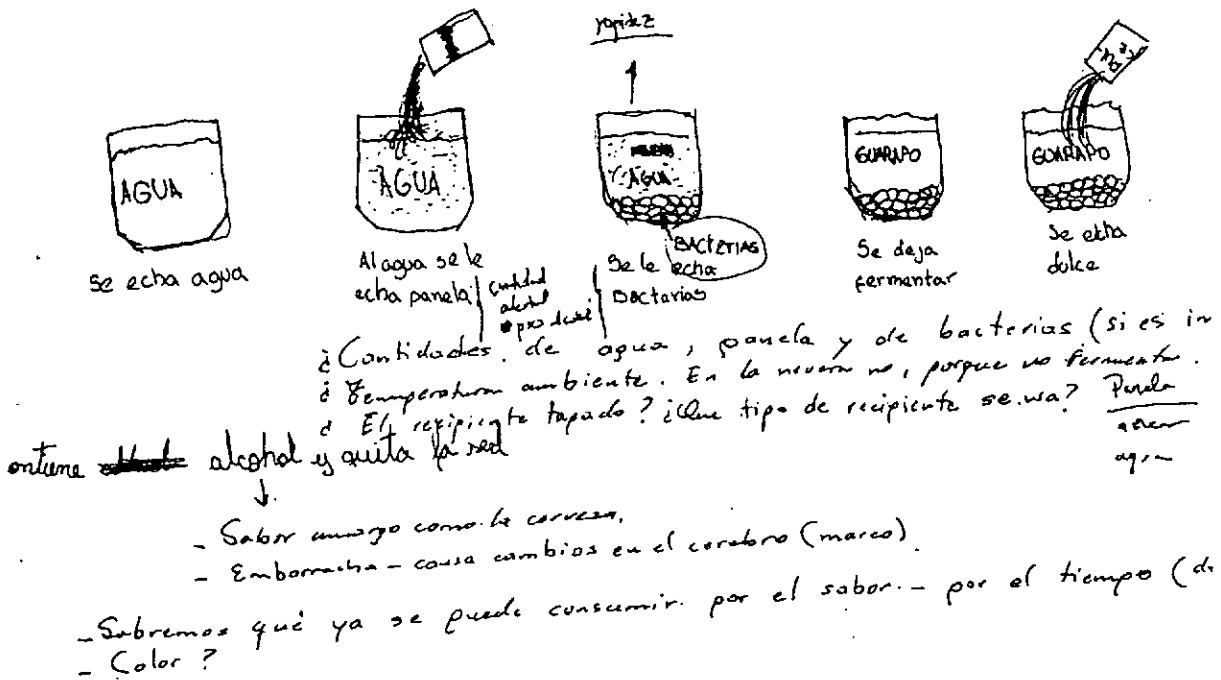 rapidez
AGUA
AGUA
AGUA
GUARAPO
GUARAPO
BACTERIAS
Se echa agua
Al agua se le
echa panela
cantidad
alcohol
Se le echa
Bacterias
Se deja
fermentar
Se echa
dulce
¿Cantidades de agua, panela y de bacterias (si es in
¿Temperatura ambiente. En la nevera no, porque no fermenta.
¿El recipiente tapado? ¿Que tipo de recipiente se usa?
Panela
agua
ontiene alcohol y quita la sed
- Sabor amargo como la cerveza.
- Emborracha - causa cambios en el cerebro (mareo)
- Sabremos qué ya se puede consumir. por el sabor. - por el tiempo (di
- Color?